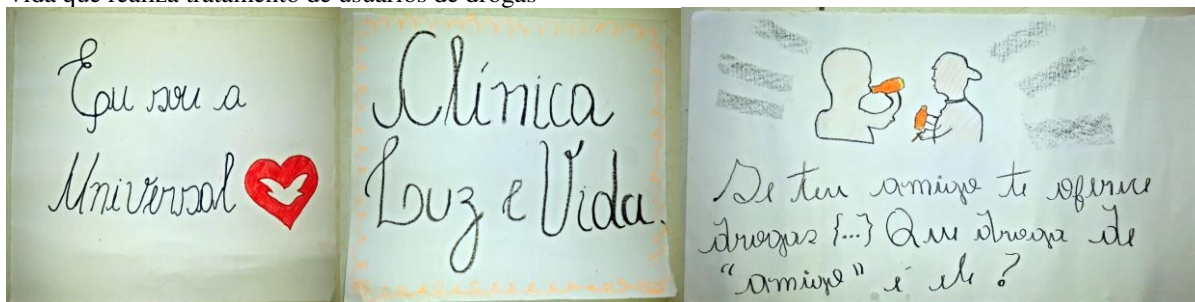 Vida que realiza tratamento de usuários de drogas
Eu sou a
Universal
Clínica
Luz e Vida.
Se teu amigo te oferece
drogas {...} Que droga de
"amigo" é ele?